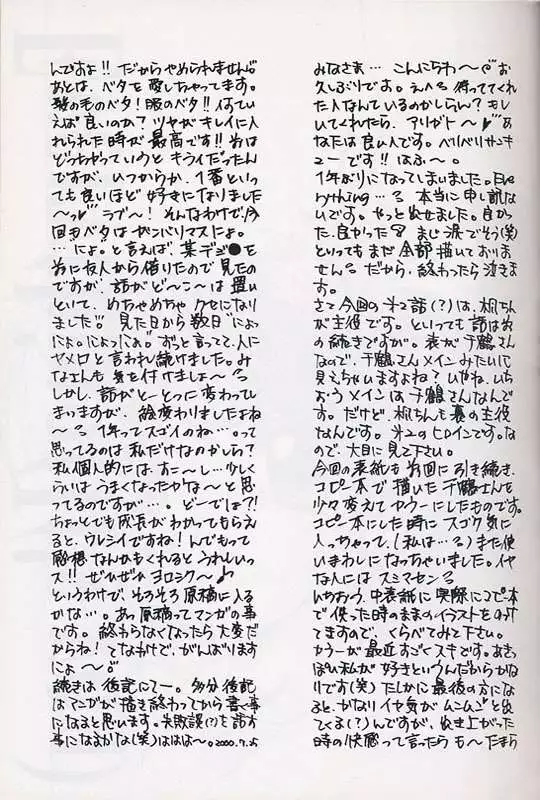 みなさま… こんにちわ～♡ お
久しぶりです。え、へ 待っててくれ
た人なんているのかしらん? もし
いてくれたら、アリガト～♥ あ
なたは良い人です。ベリベリサンキ
ューです!! はふ～。
1年ぶりになってしまいました。Eve
rything…る 本当に申し訳な
いです。やっと出せました。良かっ
た、良かった まじ涙でそう(笑)
といってもまだ全部描いておりま
せん。だから、終わったら泣きま
す。
さて今回の第2話(?)は、梓ちん
が主役です。といっても話は前
の続きですが。表が千鶴さん
なので、千鶴さんメインみたいに
見えちゃいますよね? いやね、いち
おうメインは千鶴さんなんで
す。だけど、梓ちんも裏の主役
なんです。第2のヒロインです。な
ので、大目に見て下さい。
今回の表紙も前回に引き続き、
コピー本で描いた千鶴さんを
少々変えてカラーにしたものです。
コピー本にした時にスゴク気に
入っちゃって、(私は…る)また使
いまわしになっちゃいました。イヤ
な人にはスミマセン
いちおう、中表紙に実際にコピー本
で使った時のままのイラストをのっけ
てますので、くらべてみて下さい。
カラーが最近すごくスキです。あきっ
ぽい私が好きというんだからかな
りです(笑)たしかに最後の方にな
ると、かなりイヤ気がムンムンと出
てくる(?)んですが、出き上がった
時の快感って言ったら も～たまら
んですよ!! だからやめられません。
あとは、ベタを愛しちゃってます。
髪の毛のベタ!服のベタ!! 何てい
えば良いのか? ツヤがキレイに入
れられた時が最高です!! 前は
どっちかっていうとキライだったん
ですが、いつからか、1番といっ
ても良いほど好きになりました
～っ♥ ラブ～! そんなわけで、今
回もベタはガンバリマスにょ。
…"にょ。"と言えば、某デジ●を
前に友人から借りたので見たの
ですが、話がど～こ～は置い
といて、めちゃめちゃクセになり
ました!! 見た日から数日"にょっ
にょ。にょっにょ。"ずっと言ってて、人に
ヤメロと言われ続けました。み
なさんも気を付けましょ～
しかし、話がと～とつに変わってし
まっていますが、絵変わりましたよね
～る 1年ってスゴイのね…。って
思ってるのは私だけなのかしら?
私個人的には、すこ～し…少しく
らいはうまくなったかな～と思
ってるのですが…。ど～では?!
ちょっとでも成長がわかってもらえ
ると、ウレシイですね! んでもって
感想なんかもくれるとうれしいっ
ス!! ぜひぜひ ヨロシク～♪
というわけで、そろそろ原稿に入る
かな…。あっ原稿ってマンガの事
です。終わらなくなったら大変だ
からね! てなわけで、がんばります
にょ～
続きは後記にてー。多分後記
はマンガが描き終わってから書く事
になると思います。失敗談(?)を話す
事になるかな(笑)ははは～。2000.7.25